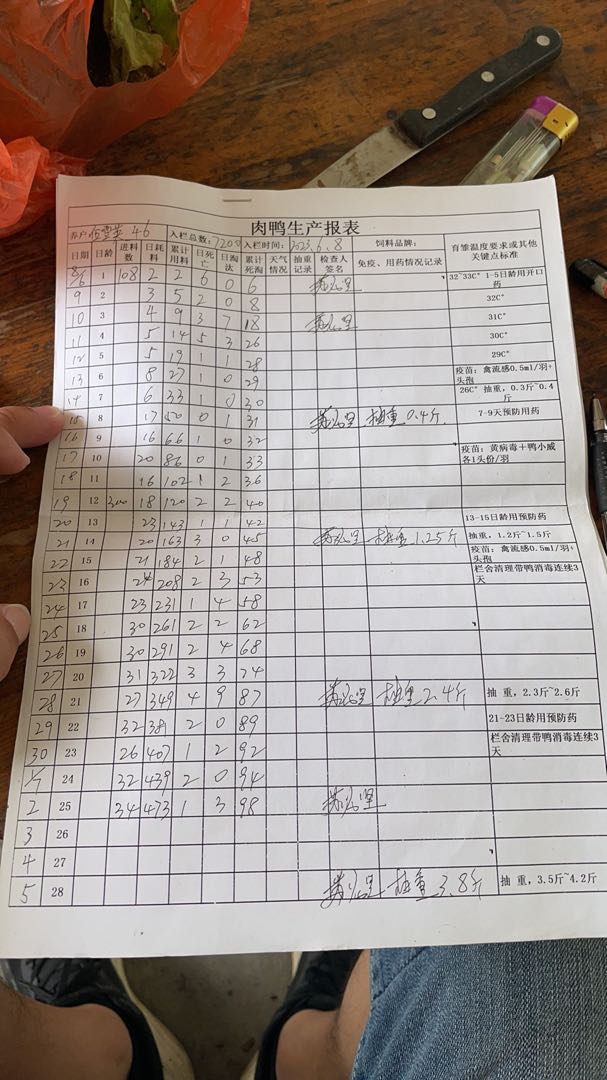 肉鸭生产报表
养户 46 入栏总数:7200 入栏时间:2023.6.8 饲料品牌: 育雏温度要求或其他关键点标准
日期 日龄 进料数 日耗料 累计用料 日死亡 日淘汰 累计死淘 天气情况 抽重记录 检查人签名 免疫、用药情况记录
8/6 1 108 2 2 6 0 6 32~33C° 1-5日龄用开口药
9 2 3 5 2 0 8 32C°
10 3 4 9 3 7 18 31C°
11 4 5 14 5 3 26 30C°
12 5 5 19 1 1 28 29C°
13 6 8 27 1 0 29 疫苗:禽流感0.5ml/羽+头孢
14 7 6 33 0 30 26C° 抽重,0.3斤~0.4斤
15 8 17 50 0 1 31 抽重0.4斤 7-9天预防用药
16 9 16 66 1 0 32
17 10 20 86 0 1 33 疫苗:黄病毒+鸭小威各1头份/羽
18 11 16 102 1 2 36
19 12 300 18 120 2 2 40
20 13 23 143 1 1 42 13-15日龄用预防药
21 14 20 163 3 0 45 抽重1.25斤 抽重,1.2斤~1.5斤
22 15 21 184 2 1 48 疫苗:禽流感0.5ml/羽+头孢
23 16 24 208 2 3 53 栏舍清理带鸭消毒连续3天
24 17 23 231 1 4 58
25 18 30 261 2 2 62
26 19 30 291 2 4 68
27 20 31 322 3 3 74
28 21 27 349 4 9 87 抽重2.4斤 抽 重,2.3斤~2.6斤
29 22 32 381 2 0 89 21-23日龄用预防药
30 23 26 407 1 2 92 栏舍清理带鸭消毒连续3天
1/7 24 32 439 2 0 94
2 25 34 473 1 3 98
3 26
4 27
5 28 抽重3.8斤 抽 重,3.5斤~4.2斤